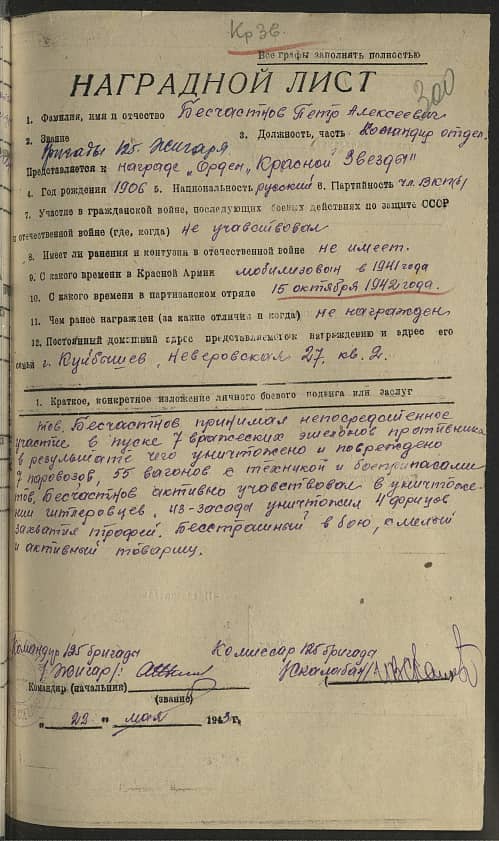 Кр Зв.
Все графы заполнять полностью
300
НАГРАДНОЙ ЛИСТ
1. Фамилия, имя и отчество Бесчастнов Петр Алексеевич
2. Звание 3. Должность, часть Командир отдел.
бригады 125 Жигаря
Представляется к награде „Орден „Красной Звезды"
4. Год рождения 1906 5. Национальность русский 6. Партийность чл. ВКП(б)
7. Участие в гражданской войне, последующих боевых действиях по защите СССР
и отечественной войне (где, когда) не учавствовал
8. Имеет ли ранения и контузии в отечественной войне не имеет.
9. С какого времени в Красной Армии мобилизован в 1941 года
10. С какого времени в партизанском отряде 15 октября 1942 года.
11. Чем ранее награжден (за какие отличия и когда) не награжден
12. Постоянный домашний адрес представляемого к награждению и адрес его
семьи г. Куйбышев, Неверовская 27. кв. 2.
1. Краткое, конкретное изложение личного боевого подвига или заслуг
тов. Бесчастнов принимал непосредственное
участие в пуске 7 вражеских эшелонов противника
в результате чего уничтожено и повреждено
7 паровозов, 55 вагонов с техникой и боеприпасами
тов. Бесчастнов активно учавствовал в уничтоже-
нии гитлеровцев. из-засады уничтожил 4 фрицов
захватил трофей. Бесстрашный в бою, смелый
и активный товарищ.
Командир 125 бригады Комиссар 125 бригады
/Жигар/: /Скалабан/
Командир (начальник)
(звание)
„ 22 " мая 1943 г.